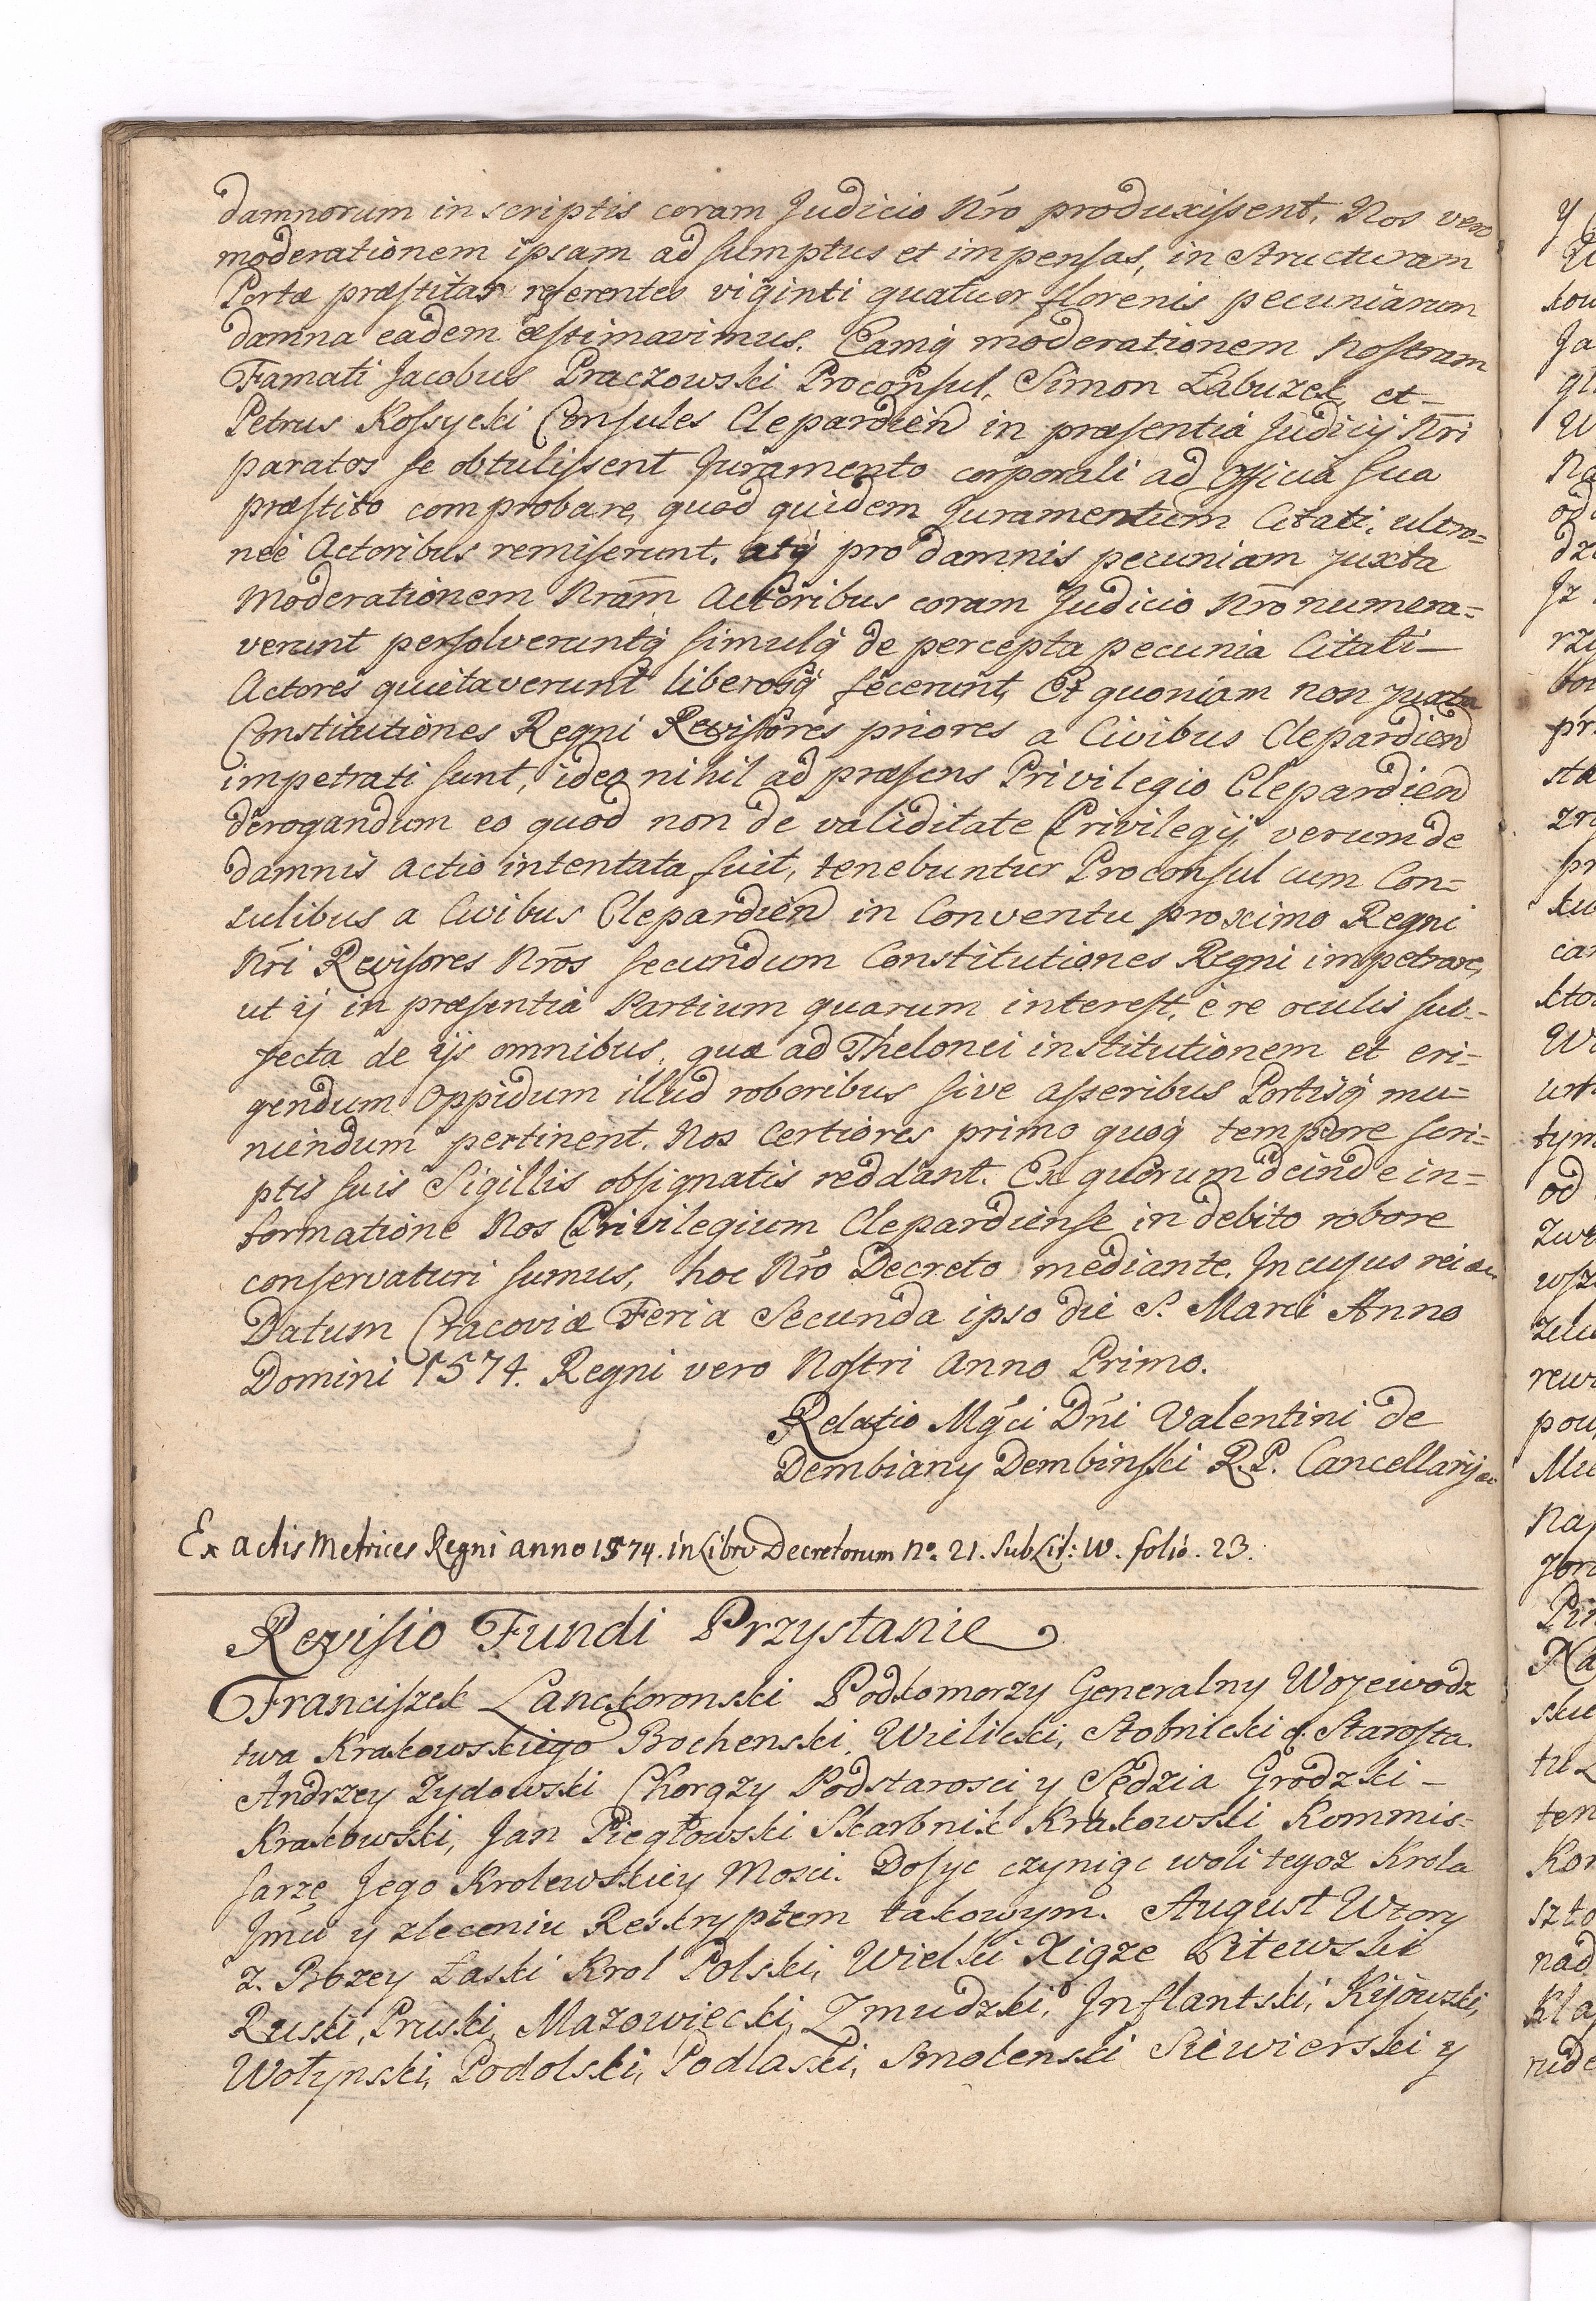 damnorum in scriptis coram Judicio Nro produxissent. Nos vero
moderationem ipsam ad sumptus et impensas, in structuram
Portæ præstitas referentes viginti quatuor florenis pecuniarum
damna eadem æstimavimus. Eamq moderationem Nostram
Famati Jacobus Praczowski Proconsul, Simon Labuzek, et
Petrus Kossycki Consules Clepardien in præsentia Judicij Nri
paratos se obtulissent Juramento corporali ad Officia sua
præstito comprobare, quod quidem Juramentum Citati, ultro=
nee Actoribus remiserunt, atq pro damnis pecuniam juxta
Moderationem Nram Actoribus coram Judicio Nro numera=
verunt persolveruntq simulq de percepta pecunia Citati
Actores quietaverunt liberosq fecerunt, Et quoniam non juxta
Constitutiones Regni Revisores priores a Civibus Clepardien
impetrati sunt, ideo nihil ad præsens Privilegio Clepardien
derogandum eo quod non de validitate Privilegij, verum de
damnis actio intentata fuit, tenebuntur Proconsul cum Con=
sulibus a Civibus Clepardien in Conventu proximo Regni
Nri Revisores Nros secundum Constitutiones Regni impetrare,
ut ij in præsentia Partium quarum interest, è re oculis sub=
jecta de ijs omnibus, quæ ad Thelonei institutionem et eri=
gendum Oppidum illud roboribus sive asseribus Portisq mu=
niendum pertinent. Nos Certiores primo quoq tempore scri=
ptis suis Sigillis obsignatis reddant. Ex quorum deinde in=
formatione Nos Privilegium Clepardiense in debito robore
conservaturi sumus, hoc Nro Decreto mediante. In cujus rei &c.
Datum Cracoviæ Feria Secunda ipso die S. Marci Anno
Domini 1574. Regni vero Nostri Anno Primo.
Relatio Mgci Dni Valentini de
Dembiany Dembinski R. P. Cancellarij &c
Ex actis Metrices Regni anno 1574. in Libro Decretorum No. 21. Sub Lit: W. folio. 23.
Revisio Fundi Przystanie
Franciszek Lanckoronski Podkomorzy Generalny Wojewodz
twa Krakowskiego Bochenski, Wielicki, Stobnicki &. Starosta.
Andrzey Zydowski Chorąży Podstarosci y Sędzia Grodzki
Krakowski, Jan Piegłowski Skarbnik Krakowski Kommis=
sarze Jego Krolewskiey Mosci. Dosyc czyniąc woli tegoz Krola
Jmci y zleceniu Reskryptem takowym. August Wtory
z Bozey Łaski Krol Polski, Wielki Xiąze Litewski
Ruski, Pruski, Mazowiecki, Zmudzki, Inflantski, Kijowski,
Wołynski, Podolski, Podlaski, Smolenski Siewierski y